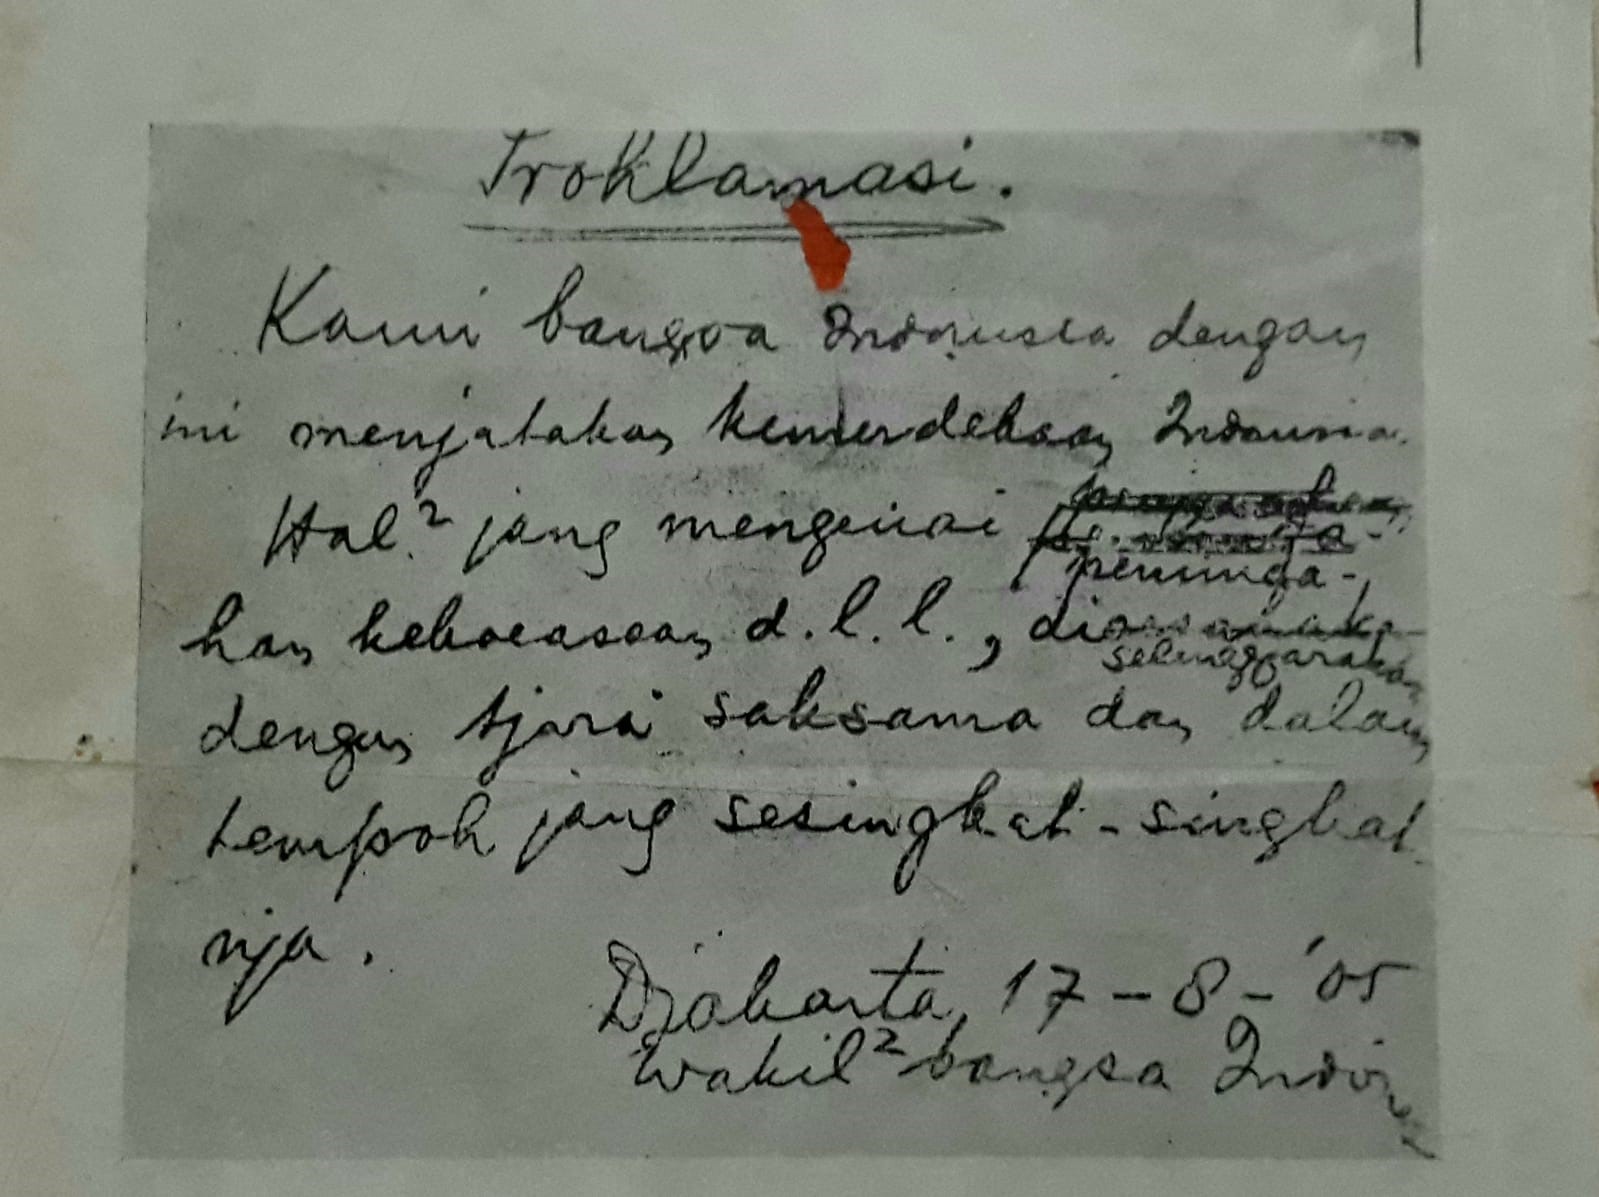 Proklamasi.
Kami bangsa Indonesia dengan
ini menjatakan kemerdekaan Indonesia.
Hal² jang mengenai
peminda-
han kekoeasaan d.l.l., di
selenggarakan
dengan tjara saksama dan dalam
tempoh jang sesingkat-singkat
nja.
Djakarta, 17 - 8 - '05
Wakil² bangsa Indone